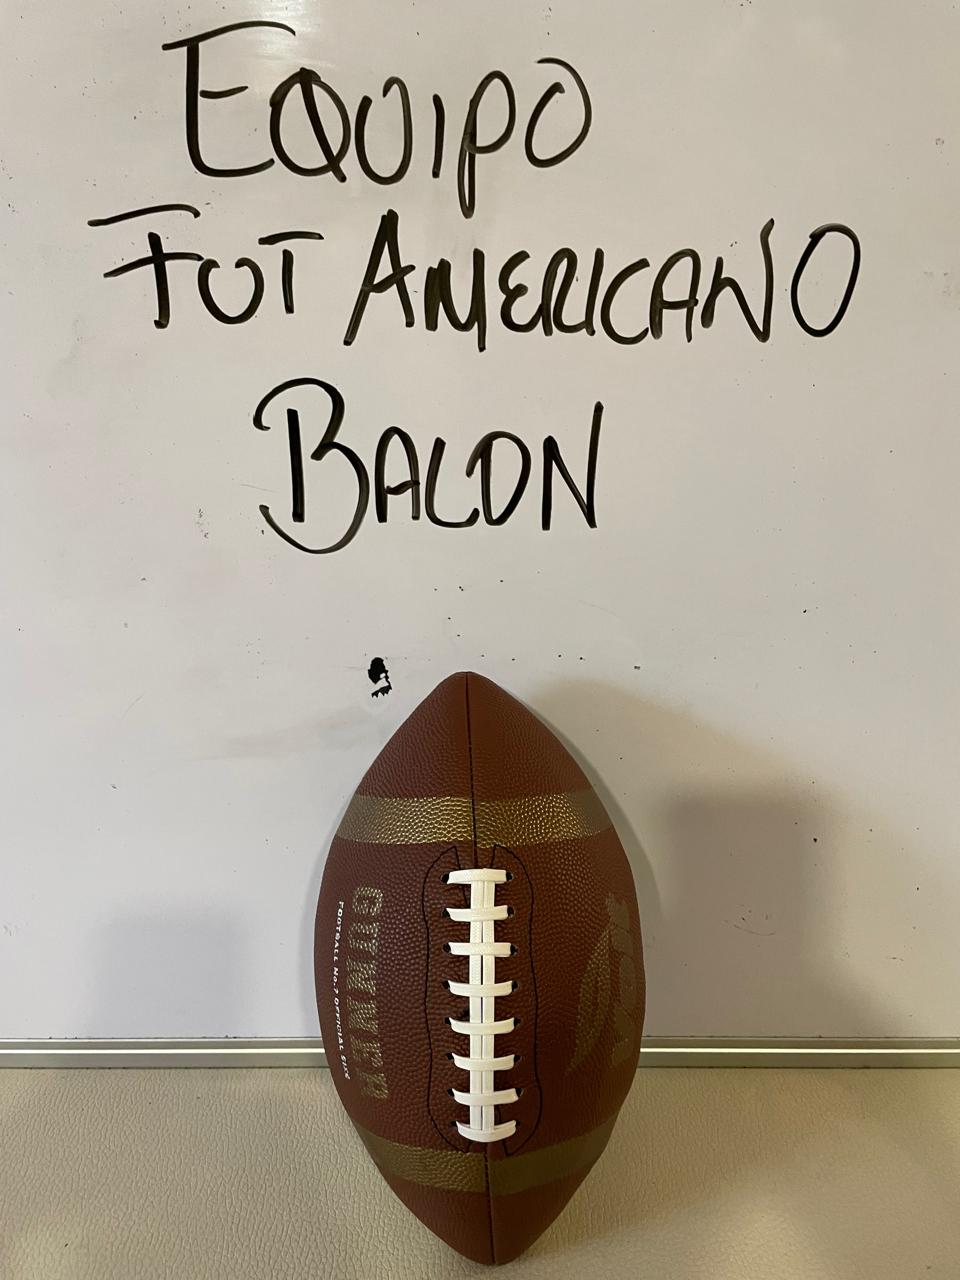 EQUIPO
FUT AMERICANO
BALON
GUNNER
FOOTBALL No.7 OFFICIAL SIZE